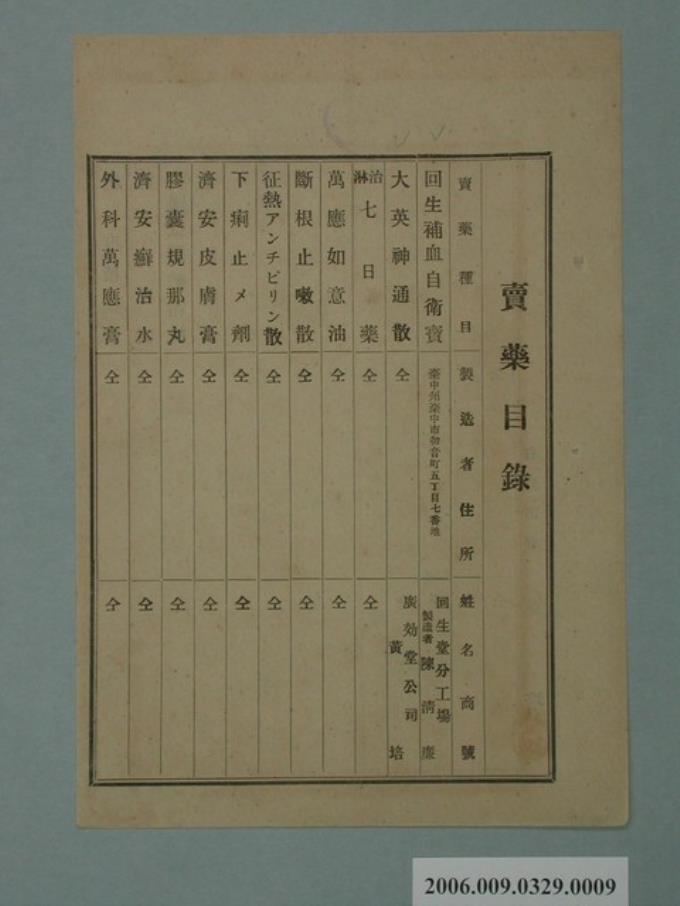 賣藥目錄
賣藥種目 製造者住所 姓名商號
回生補血自衛寶 臺中州臺中市初音町五丁目七番地 回生堂分工場 製造者 陳清廉
大英神通散 仝 廣効堂公司 黃培
治淋七日藥 仝 仝
萬應如意油 仝 仝
斷根止嗽散 仝 仝
征熱アンチピリン散 仝 仝
下痢止メ劑 仝 仝
濟安皮膚膏 仝 仝
膠囊規那丸 仝 仝
濟安癬治水 仝 仝
外科萬應膏 仝 仝
2006.009.0329.0009